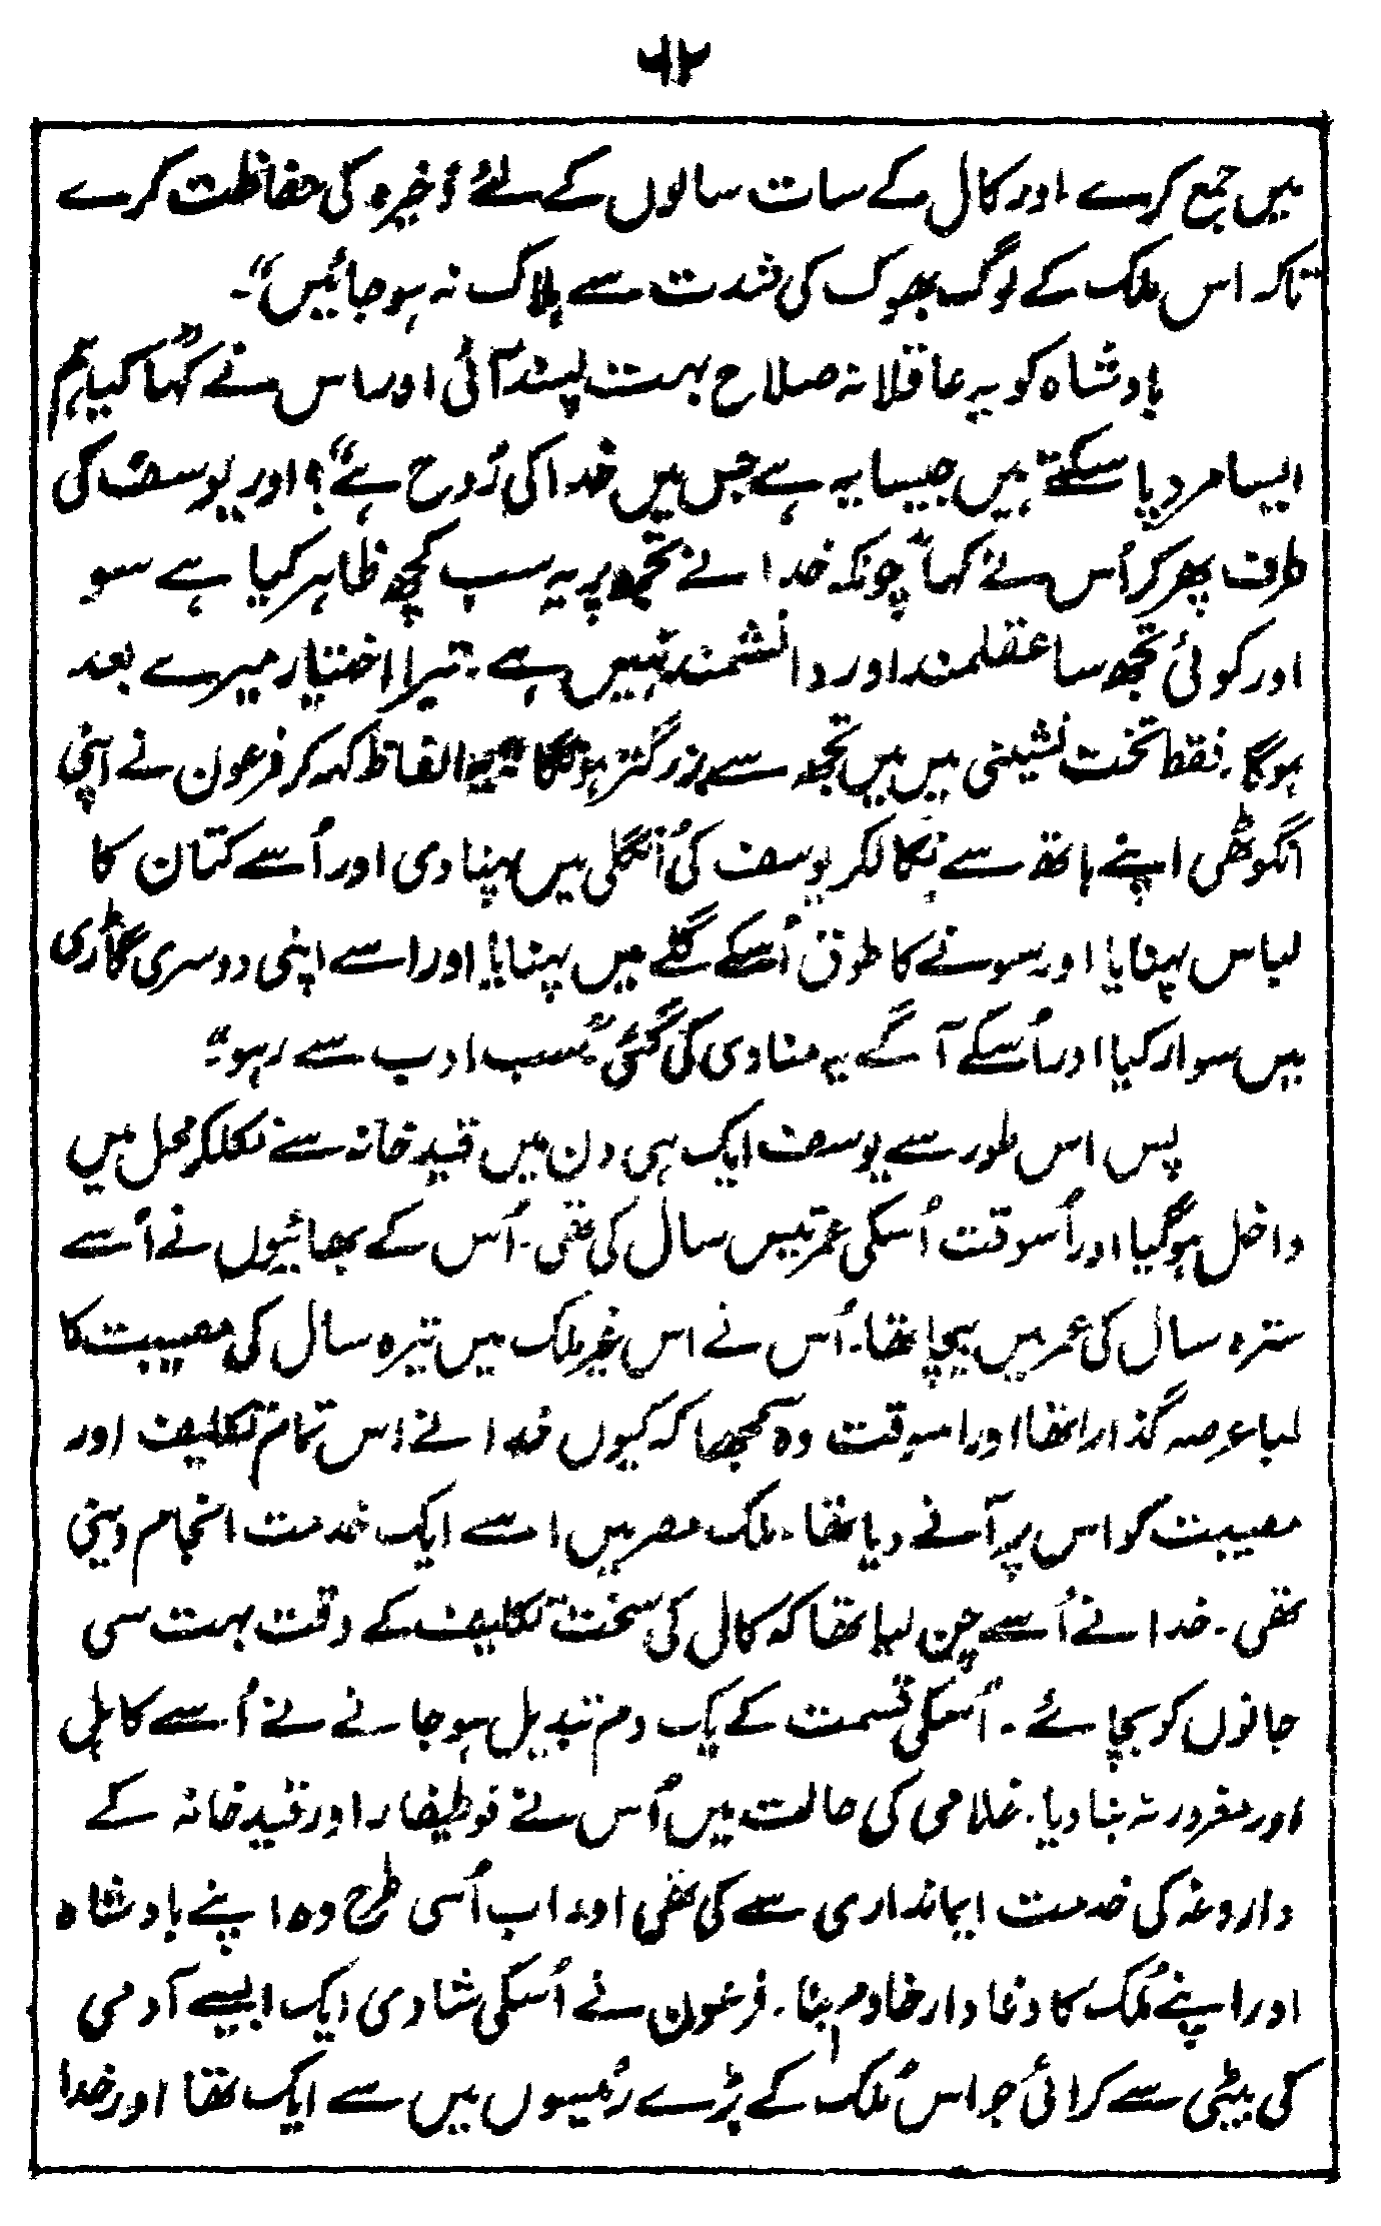 ۶۲
میں جمع کرے اور کال کے سات سالوں کے لئے ذخیرہ کی حفاظت کرے
تاکہ اس ملک کے لوگ بھوک کی شدت سے ہلاک نہ ہو جائیں“۔
بادشاہ کو یہ عاقلانہ صلاح بہت پسند آئی اور اس نے کہا ”کیا ہم
ایسا مرد پا سکتے ہیں جیسا یہ ہے جس میں خدا کی رُوح ہے“؟ اور یوسف کی
طرف پھر کر اُس نے کہا ”چونکہ خدا نے تجھ پر یہ سب کچھ ظاہر کیا ہے سو
اور کوئی تجھ سا عقلمند اور دانشمند نہیں ہے۔ تیرا اختیار میرے بعد
ہوگا۔ فقط تخت نشینی میں میں تجھ سے بزرگتر ہونگا“ یہ الفاظ کہہ کر فرعون نے اپنی
انگوٹھی اپنے ہاتھ سے نکالکر یوسف کی اُنگلی میں پہنا دی اور اُسے کتان کا
لباس پہنایا اور سونے کا طوق اُسکے گلے میں پہنایا اور اسے اپنی دوسری گاڑی
میں سوار کیا اور اُسکے آگے یہ منادی کی گئی ”سب ادب سے رہو“۔
پس اس طور سے یوسف ایک ہی دن میں قید خانہ سے نکلکر محل میں
داخل ہوگیا اور اُسوقت اُسکی عمر تیس سال کی تھی۔ اُس کے بھائیوں نے اُسے
سترہ سال کی عمر میں بیچا تھا۔ اُس نے اس غیر ملک میں تیرہ سال کی مصیبت کا
لمبا عرصہ گذارا تھا اور اسوقت وہ سمجھا کہ کیوں خدا نے اس تمام تکلیف اور
مصیبت کو اس پر آنے دیا تھا۔ ملک مصر میں اسے ایک خدمت انجام دینی
تھی۔ خدا نے اُسے چن لیا تھا کہ کال کی سخت تکلیف کے وقت بہت سی
جانوں کو بچائے۔ اُسکی قسمت کے یک دم تبدیل ہو جانے نے اُسے کاہل
اور مغرور نہ بنا دیا۔ غلامی کی حالت میں اُس نے فوطیفار اور قید خانہ کے
داروغہ کی خدمت ایمانداری سے کی تھی اور اب اُسی طرح وہ اپنے بادشاہ
اور اپنے مُلک کا وفادار خادم بنا۔ فرعون نے اُسکی شادی ایک ایسے آدمی
کی بیٹی سے کرائی جو اس مُلک کے بڑے رئیسوں میں سے ایک تھا اور خدا